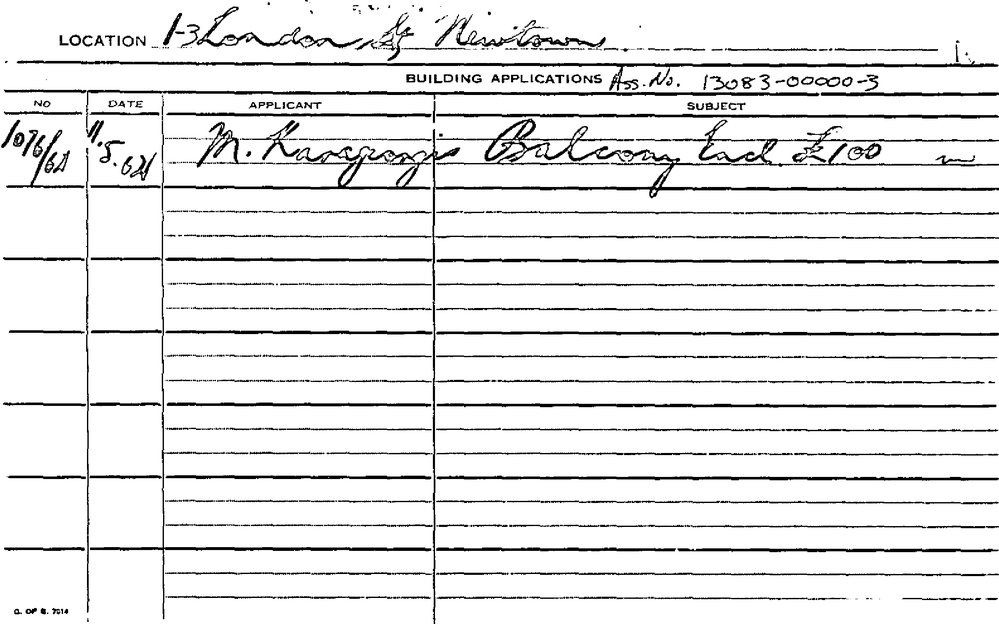 LOCATION 1-3 London St Newtown
BUILDING APPLICATIONS Ass. No. 13083-00000-3
NO DATE APPLICANT SUBJECT
1076/62 11.5.62 M. Balcony Encl. £100